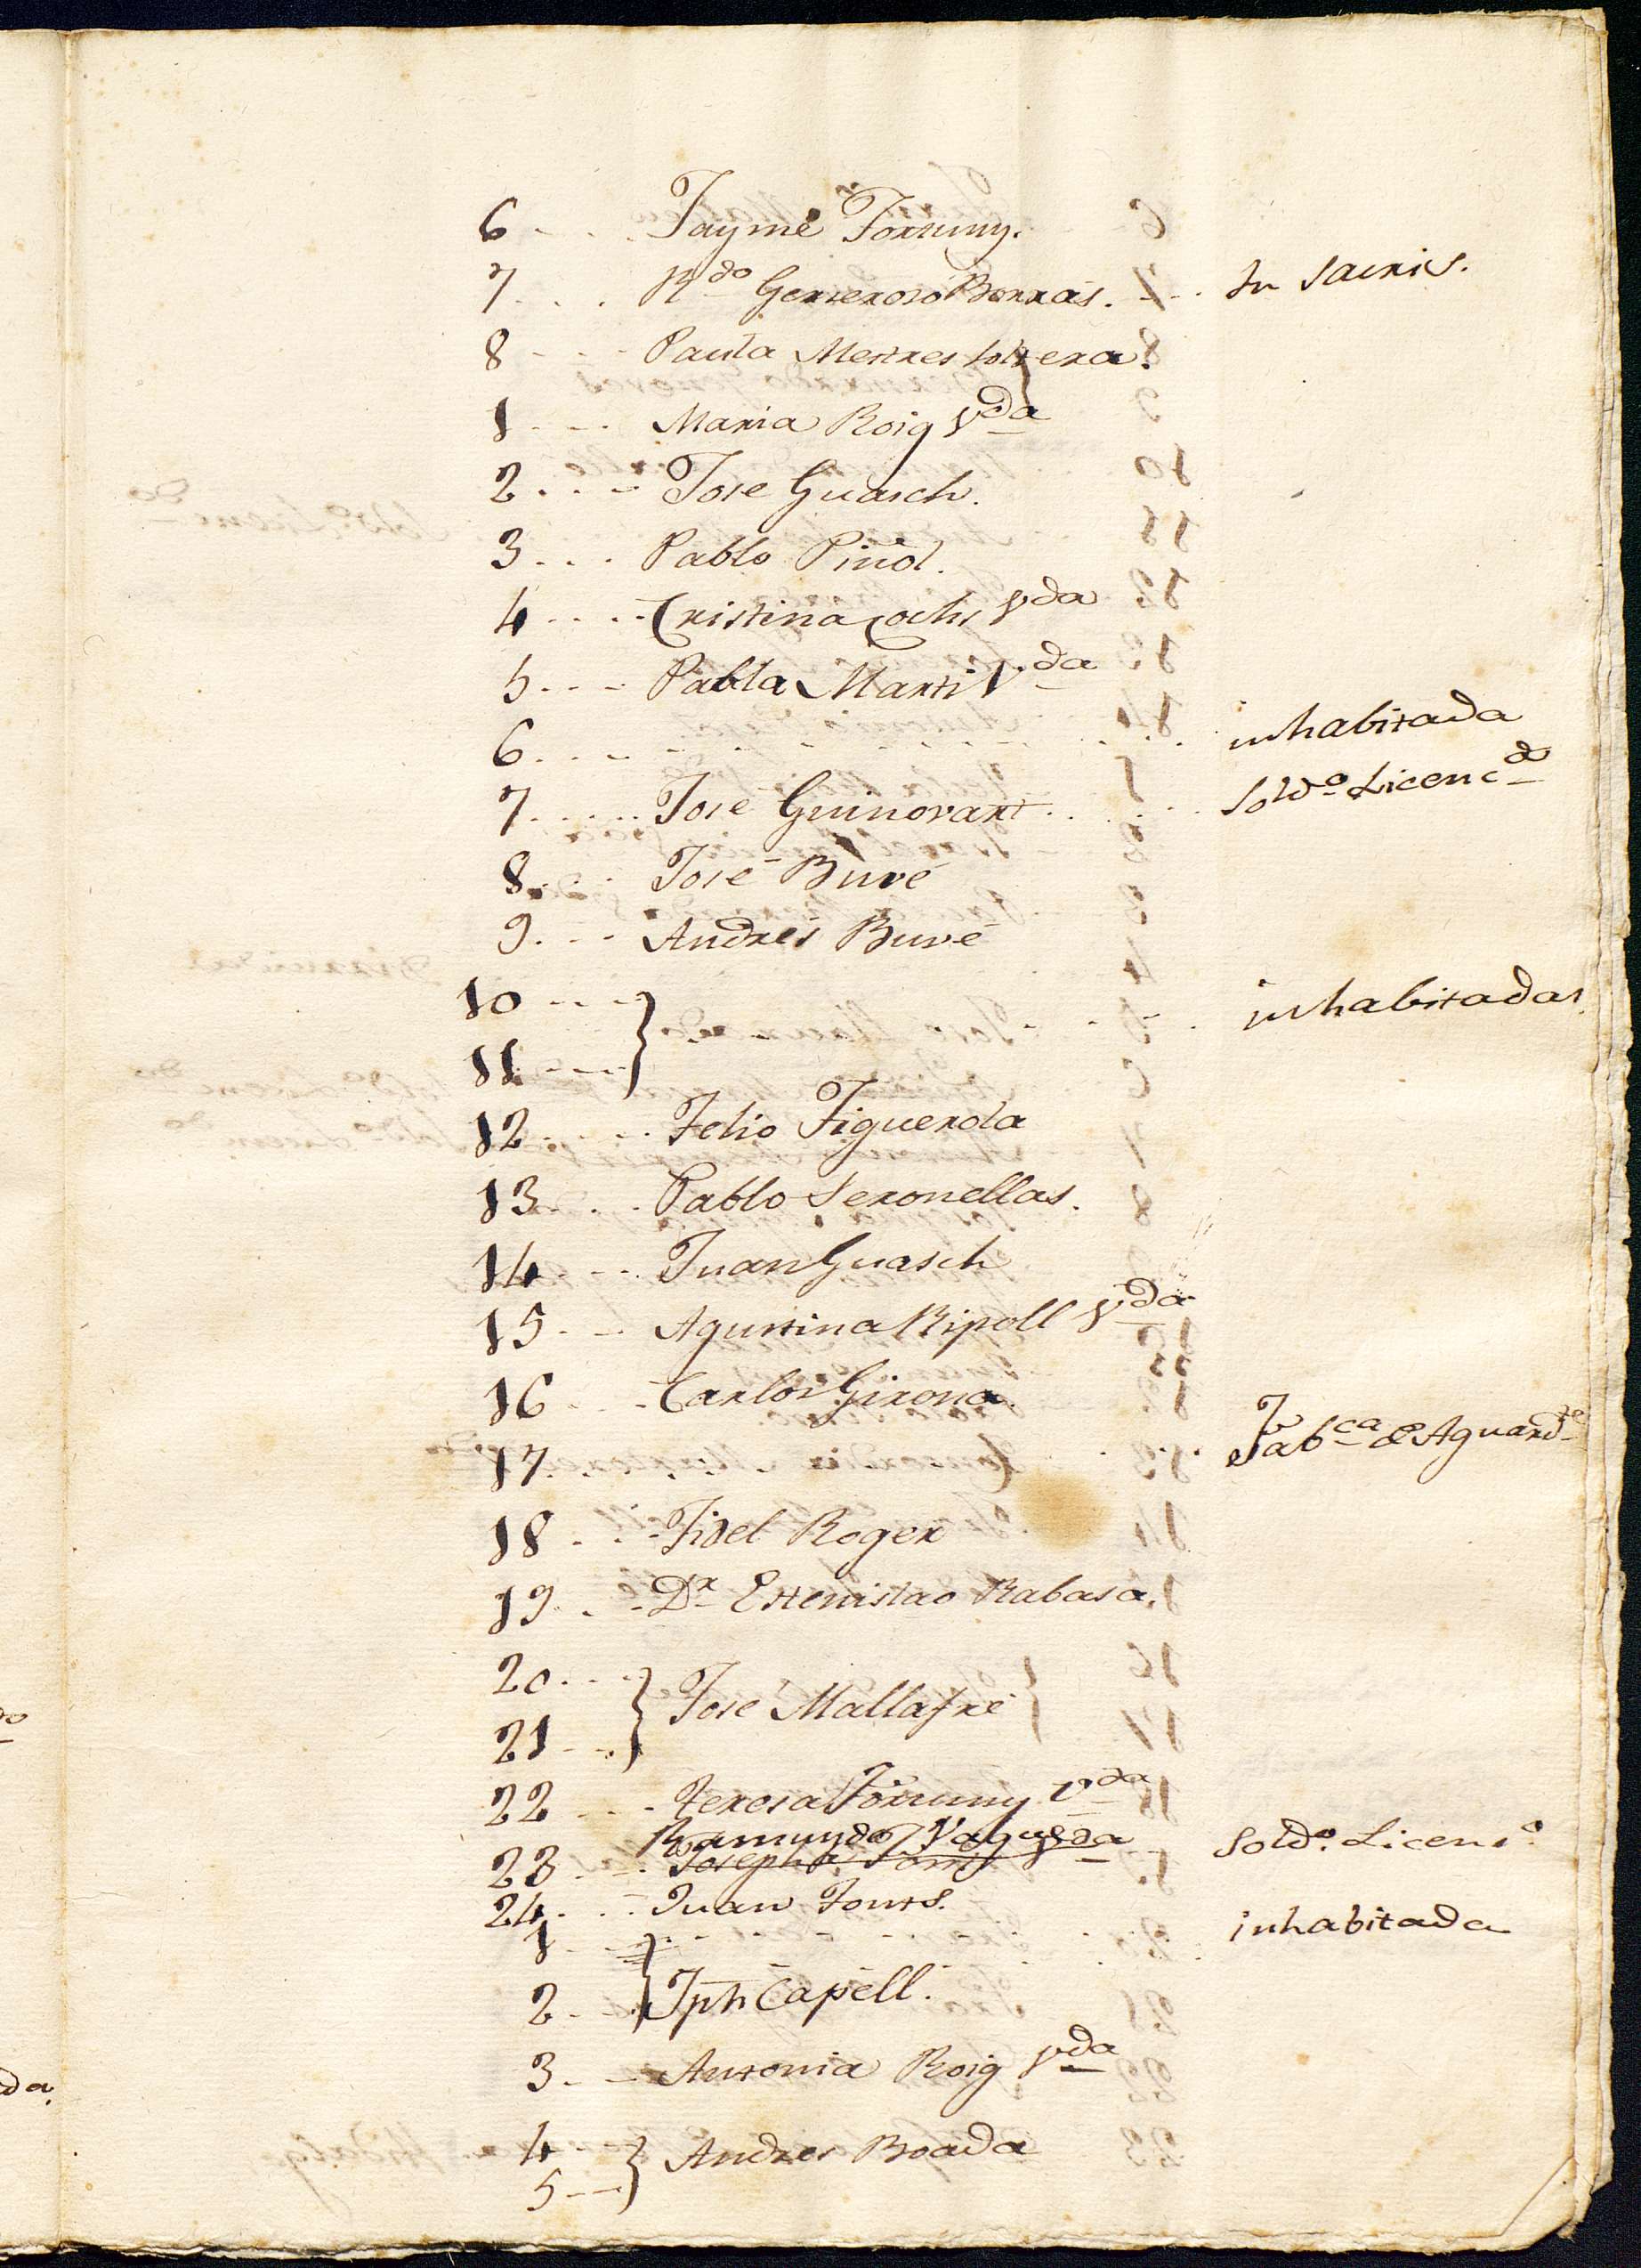 6 Jayme Fortuny.
7 R.do Generoso Borrás. In Sacris.
8 Paula Mestres soltera.
1 Maria Roig V.da
2 Jose Guasch.
3 Pablo Piñol.
4 Cristina Cochs V.da
5 Pabla Marti V.da
6 inhabitada
7 Jose Guinovart Sold.o Licenc.do
8 José Buvé
9 Andrés Buvé
10 } inhabitadas
11
12 Felio Figuerola
13 Pablo Seronellas.
14 Juan Guasch
15 Agustina Ripoll V.da
16 Carlos Girona.
17 Fab.ca de Aguard.te
18 Fidel Roger
19 D.r Estenislao Rabasa.
20 } José Mallafré
21
22 Teresa Fortuny V.da
Ramundo Sold.o Licenc.o
23 Josepha V.da
24 Juan Fonts.
1 inhabitada
2 Jph Capell.
3 Antonia Roig V.da
4 } Andres Boada
5